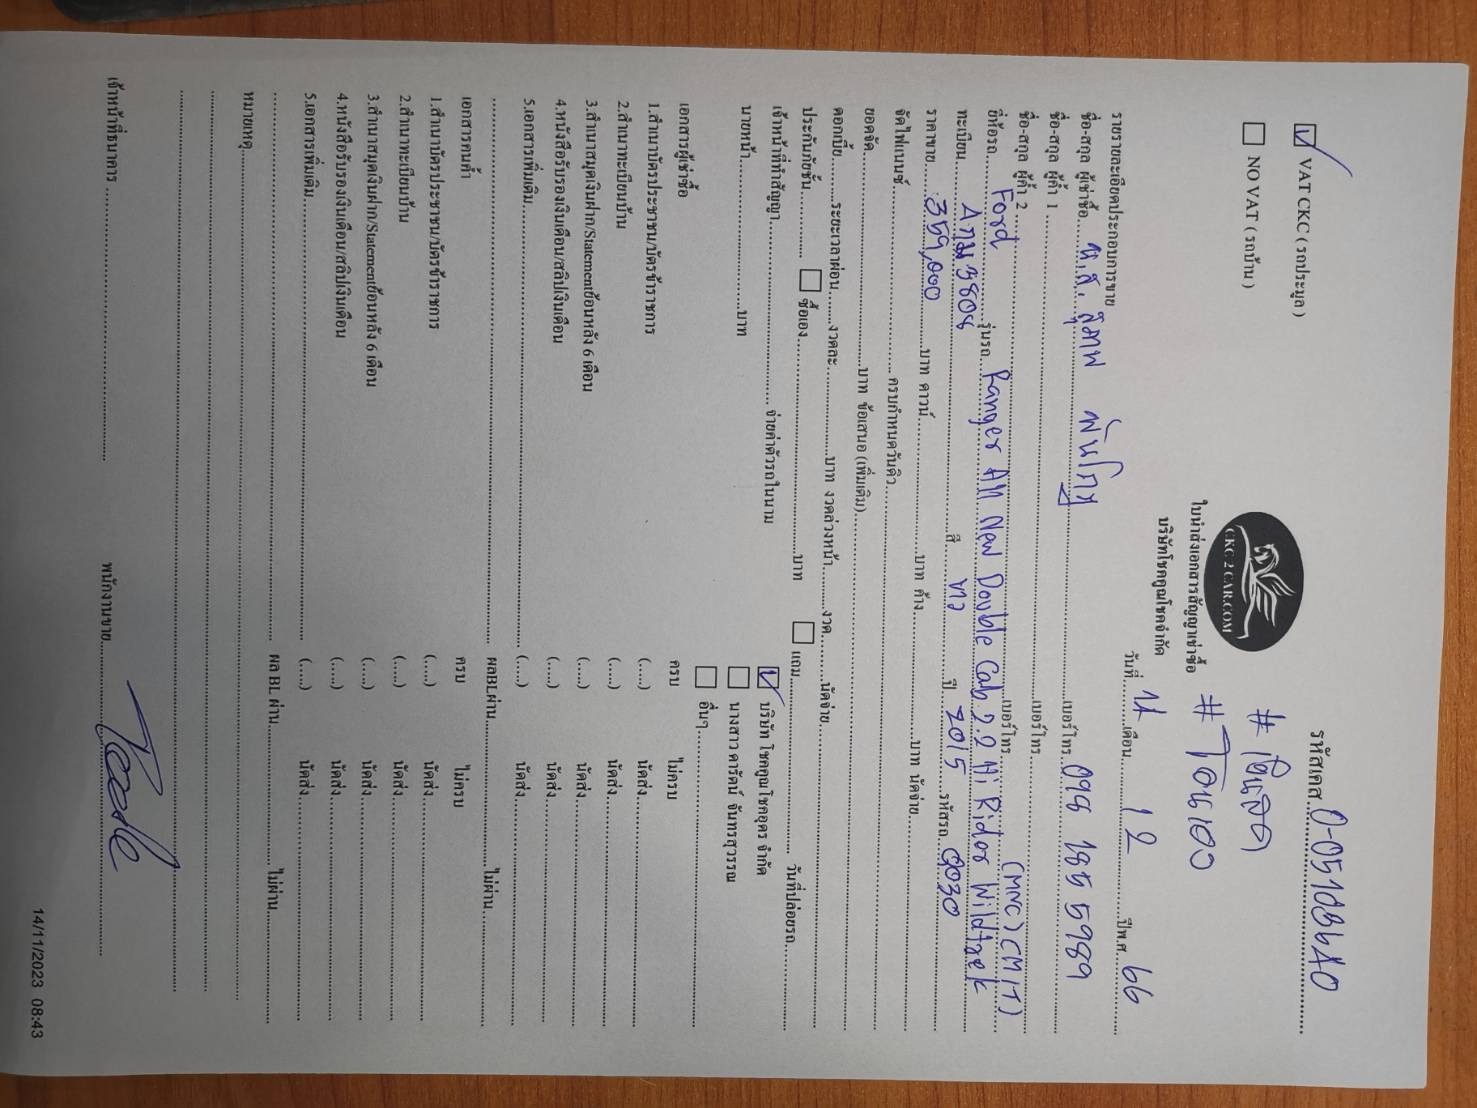 รหัสเคส
VAT CKC ( รถประมูล )
NO VAT ( รถบ้าน )
CKC 2 CAR.COM
ใบนำส่งเอกสารสัญญาเช่าซื้อ
บริษัทโชคคูณโชคจำกัด
วันที่ เดือน 12 ปีพ.ศ. 66
รายรายละเอียดประกอบการขาย
ชื่อ-สกุล ผู้เช่าซื้อ น.ส. เบอร์โทร
ชื่อ-สกุล ผู้ค้ำ 1 เบอร์โทร
ชื่อ-สกุล ผู้ค้ำ 2 เบอร์โทร (MNC) (MIT)
ยี่ห้อรถ Ford รุ่นรถ Ranger All New Double Cab 2.2 Hi Rider Wildtrak
ทะเบียน สี ขาว ปี 2015 รหัสรถ
ราคาขาย 359,000 บาท ดาวน์ บาท ค้าง บาท นัดจ่าย
จัดไฟแนนซ์ ครบกำหนดวันคิว
ยอดจัด บาท ข้อเสนอ (เพิ่มเติม)
ดอกเบี้ย ระยะเวลาผ่อน งวดละ บาท งวดล่วงหน้า งวด นัดจ่าย
ประกันภัยชั้น ซื้อเอง บาท แถม วันที่ปล่อยรถ
เจ้าหน้าที่ทำสัญญา จ่ายค่าตัวรถในนาม บริษัท โชคคูณโชคอุดร จำกัด
นายหน้า บาท นางสาว ดารัตน์ จันทรสุวรรณ
อื่นๆ
เอกสารผู้เช่าซื้อ ครบ ไม่ครบ
1.สำเนาบัตรประชาชน/บัตรข้าราชการ (....) นัดส่ง
2.สำเนาทะเบียนบ้าน (....) นัดส่ง
3.สำเนาสมุดเงินฝาก/Statementย้อนหลัง 6 เดือน (....) นัดส่ง
4.หนังสือรับรองเงินเดือน/สลิปเงินเดือน (....) นัดส่ง
5.เอกสารเพิ่มเติม (....) นัดส่ง
ผลBLผ่าน ไม่ผ่าน
เอกสารคนค้ำ ครบ ไม่ครบ
1.สำเนาบัตรประชาชน/บัตรข้าราชการ (....) นัดส่ง
2.สำเนาทะเบียนบ้าน (....) นัดส่ง
3.สำเนาสมุดเงินฝาก/Statementย้อนหลัง 6 เดือน (....) นัดส่ง
4.หนังสือรับรองเงินเดือน/สลิปเงินเดือน (....) นัดส่ง
5.เอกสารเพิ่มเติม (....) นัดส่ง
ผล BL ผ่าน ไม่ผ่าน
หมายเหตุ
เจ้าหน้าที่ธนาคาร พนักงานขาย
14/11/2023 08:43